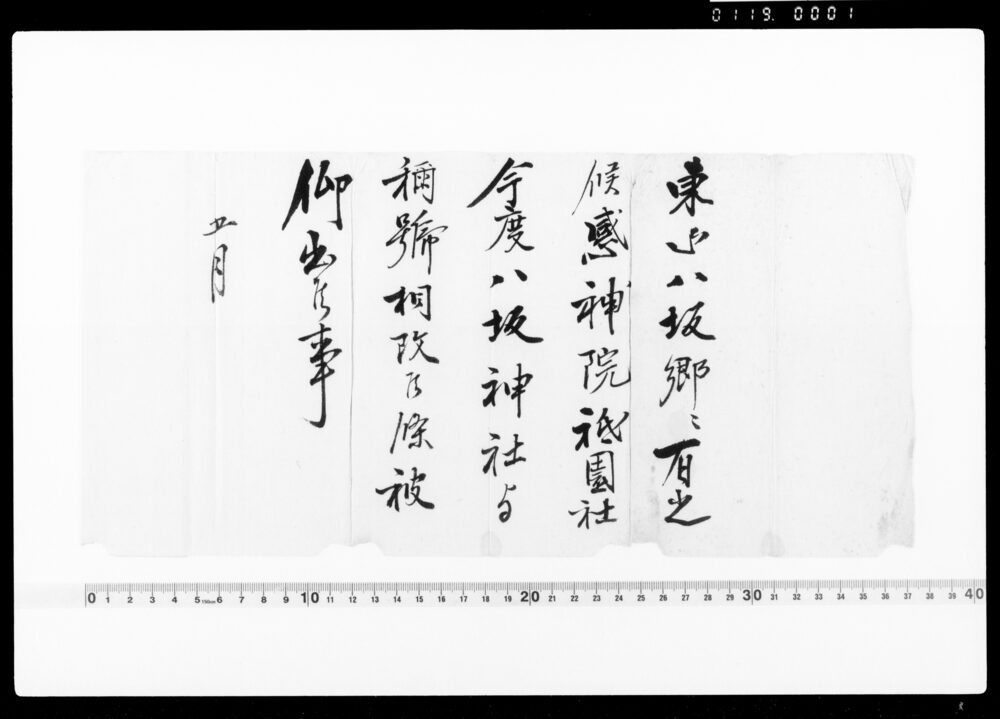 0119. 0001
東山八坂郷ニ有之
候感神院祇園社
今度八坂神社与
稱號相改候條被
仰出候事
五月
0 1 2 3 4 5 6 7 8 9 10 11 12 13 14 15 16 17 18 19 20 21 22 23 24 25 26 27 28 29 30 31 32 33 34 35 36 37 38 39 40